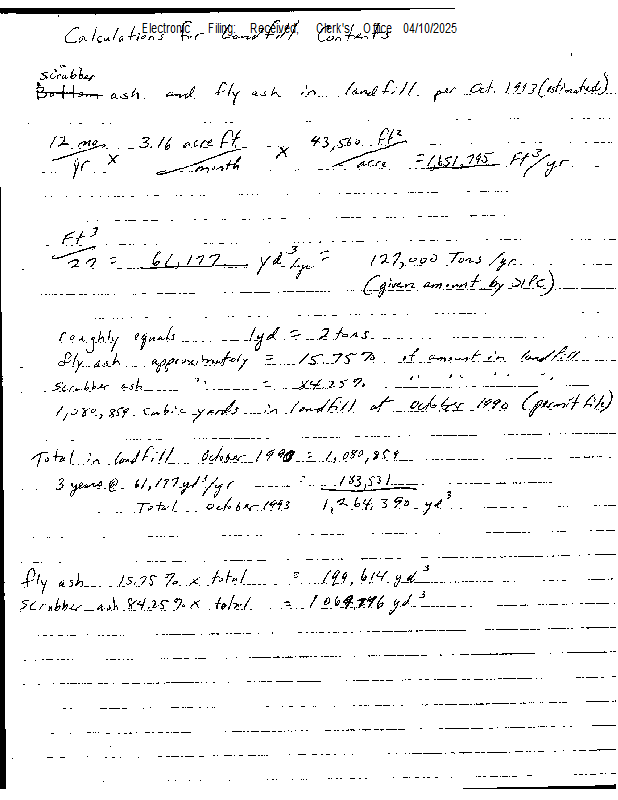 Electronic Filing: Received, Clerk's Office 04/10/2025
Calculations for Landfill Contents
scrubber
Bottom ash and fly ash in landfill per Oct. 1993 (estimated)
12 mos/yr x 3.16 acre ft/month x 43,560 ft²/acre = 1,651,795 Ft³/yr
Ft³/27 = 61,177 yd³/yr = 127,000 Tons/yr
(given amount by SIPC)
roughly equals 1yd = 2 tons
fly ash approximately = 15.75% of amount in landfill
scrubber ash " = 84.25% " " " "
1,080,859 cubic yards in landfill at October 1990 (permit file)
Total in landfill October 1990 = 1,080,859
3 years @ 61,177 yd³/yr = 183,531
Total October 1993 1,264,390 yd³
fly ash 15.75% x total = 199,614 yd³
scrubber ash 84.25% x total = yd³